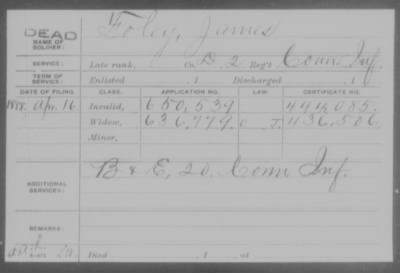 DEAD
NAME OF SOLDIER: Foley, James
SERVICE: Late rank, Co. D, 2 Reg't Conn Inf.
TERM OF SERVICE: Enlisted , 1 Discharged , 1
DATE OF FILING. CLASS. APPLICATION NO. LAW. CERTIFICATE NO.
1888. Apr. 16 Invalid, 650,539 444,085.
Widow, 636,779 J. 436,506
Minor,
ADDITIONAL SERVICES: B & E, 20, Conn Inf.
REMARKS:
Died , 1 , at